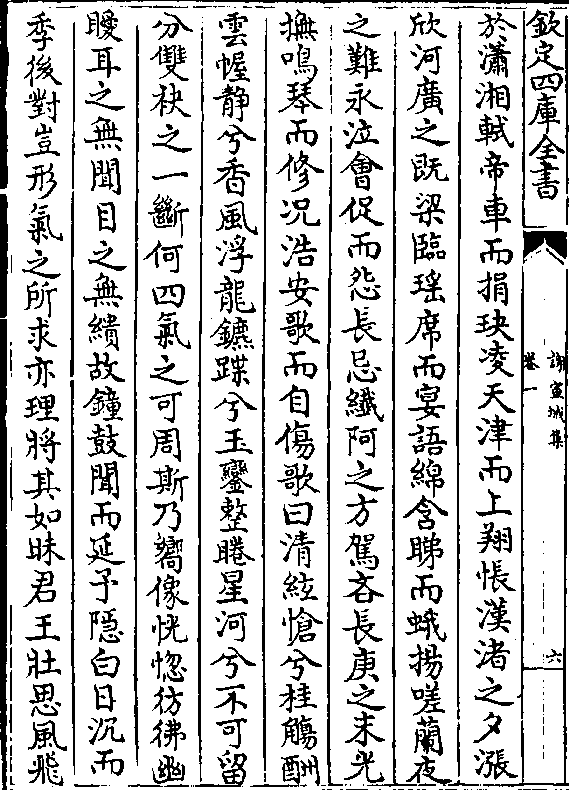 欽定四庫全書
謝宣城集
卷一
六
於瀟湘軾帝車而捐玦凌天津而上翔悵漢渚之夕漲
欣河廣之既梁臨瑶席而宴語綿含睇而蛾揚嗟蘭夜
之難永泣會促而怨長忌纎阿之方駕吝長庚之末光
撫鳴琴而修况浩安歌而自傷歌曰清絃愴兮桂觴酬
雲幄静兮香風浮龍鑣蹀兮玉鑾整睠星河兮不可留
分雙袂之一斷何四氣之可周斯乃嚮像恍惚彷彿幽
曖耳之無聞目之無繢故鐘鼓聞而延予隱白日沉而
季後對豈形氣之所求亦理將其如昧君王壯思風飛